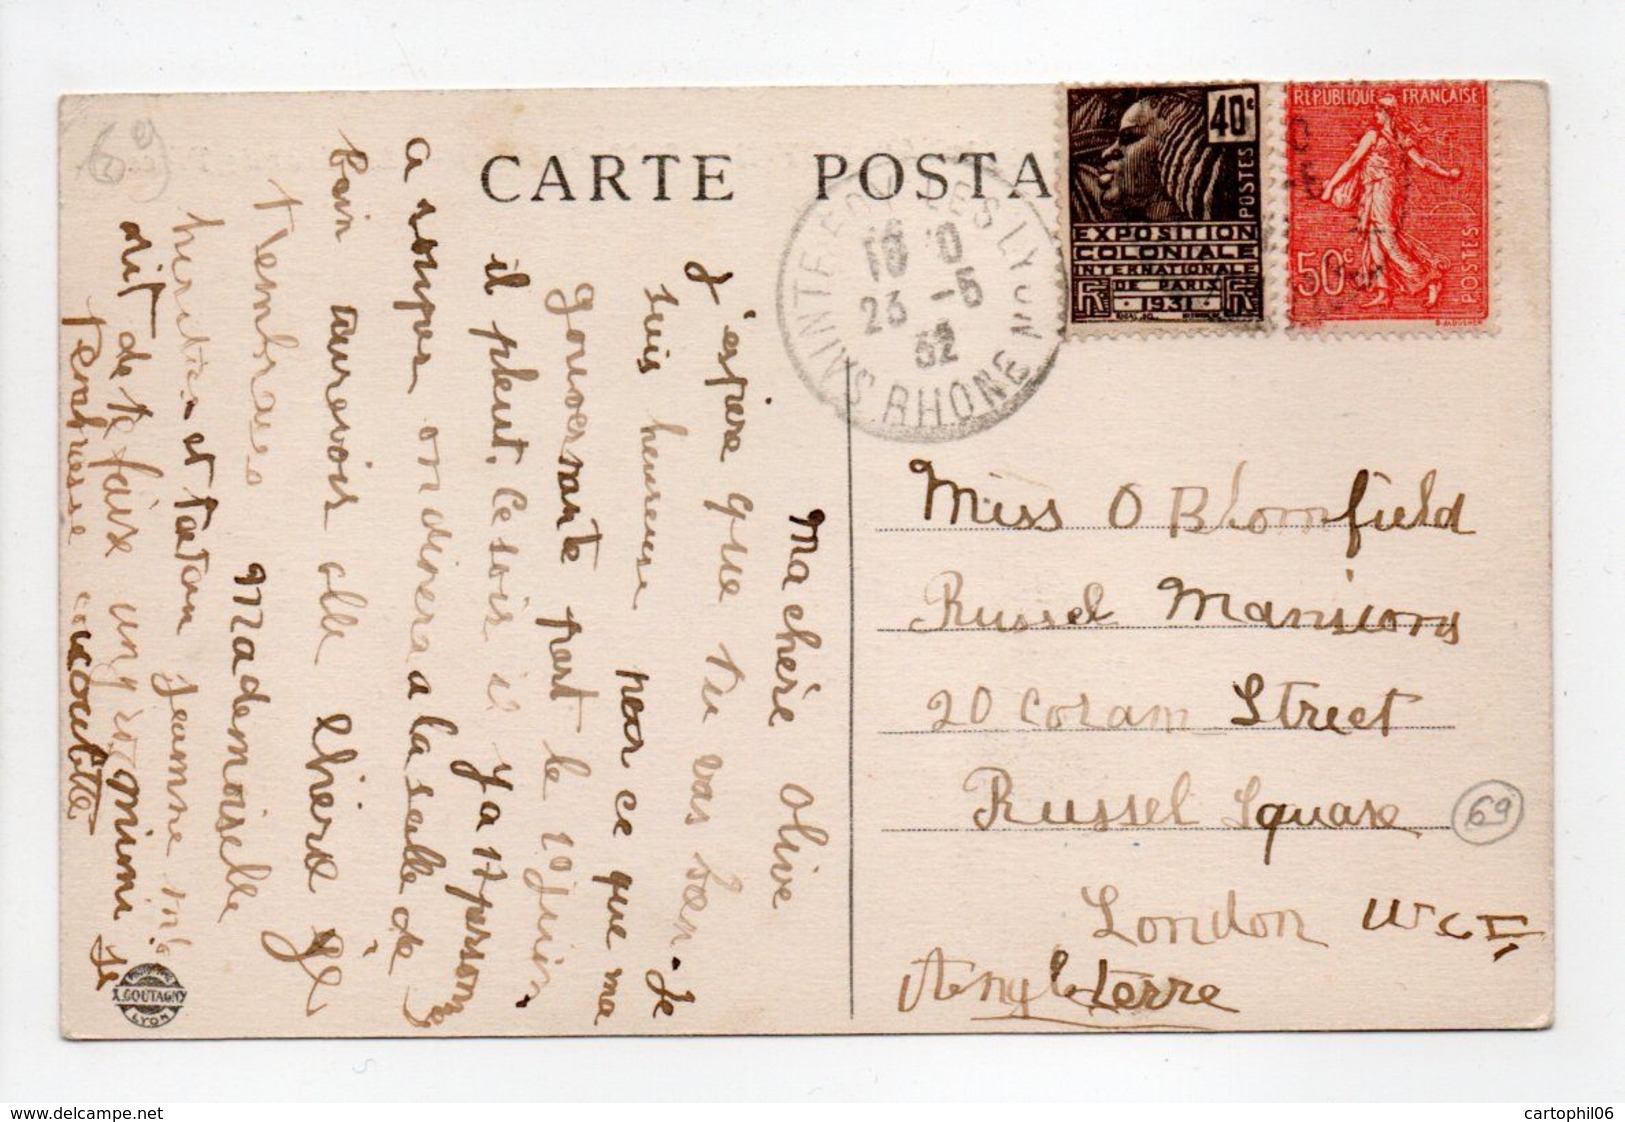 CARTE POSTA
40c
POSTES
EXPOSITION
COLONIALE
INTERNATIONALE
DE PARIS
1931
REPUBLIQUE FRANÇAISE
50c
POSTES
SAINTE FOY LES LYON
RHONE
23 -5
32
Ma chère Olive
J'espere que tu vas bien. Je
suis heureuse par ce que ma
gouvernante part le 10 juin
il pleut. Ce soir il y a 17 person
a soupe on dinera a la salle de
bain aurevoir olle chère je
t'embrasse Mademoiselle
et tatan jeanne
de te faire un mimi je
Miss O Bloomfield
Russel Mansions
20 Coram Street
Russel Square
London W C I
Angleterre
69
69
A. GOUTAGNY
LYON
delcampe.net
cartophil06